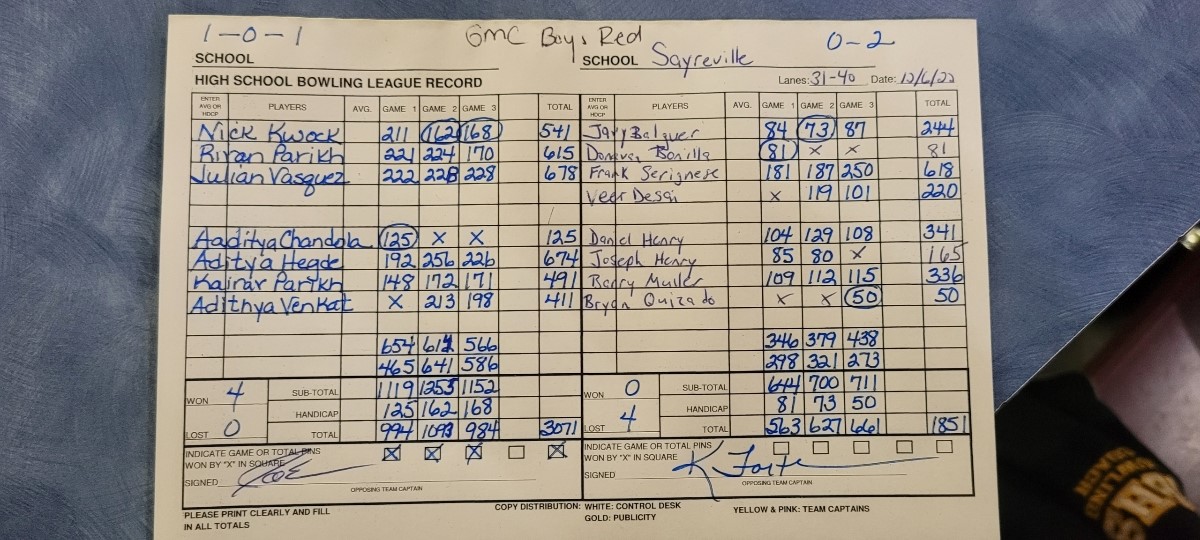 1-0-1 GMC Boys Red 0-2
SCHOOL SCHOOL Sayreville
HIGH SCHOOL BOWLING LEAGUE RECORD Lanes: 31-40 Date: 12/6/22
ENTER AVG OR HDCP PLAYERS AVG. GAME 1 GAME 2 GAME 3 TOTAL ENTER AVG OR HDCP PLAYERS AVG. GAME 1 GAME 2 GAME 3 TOTAL
Nick Kwock 211 162 168 541 Balquer 84 73 87 244
Parikh 221 224 170 615 Bonilla 81 X X 81
Julian Vasquez 222 228 228 678 Frank Serignese 181 187 250 618
Veer Desai X 119 101 220
Aaditya Chandola 125 X X 125 Daniel Henry 104 129 108 341
Aditya Hegde 192 256 226 674 Joseph Henry 85 80 X 165
Parikh 148 172 171 491 Barry Muller 109 112 115 336
Adithya Venkat X 213 198 411 Bryan X X 50 50
654 614 566 346 379 438
465 641 586 298 321 273
WON 4 SUB-TOTAL 1119 1255 1152 WON 0 SUB-TOTAL 644 700 711
HANDICAP 125 162 168 HANDICAP 81 73 50
LOST 0 TOTAL 994 1093 984 3071 LOST 4 TOTAL 563 627 661 1851
INDICATE GAME OR TOTAL PINS X X X X INDICATE GAME OR TOTAL PINS
WON BY "X" IN SQUARE WON BY "X" IN SQUARE
SIGNED SIGNED K
OPPOSING TEAM CAPTAIN OPPOSING TEAM CAPTAIN
PLEASE PRINT CLEARLY AND FILL COPY DISTRIBUTION: WHITE: CONTROL DESK YELLOW & PINK: TEAM CAPTAINS
IN ALL TOTALS GOLD: PUBLICITY